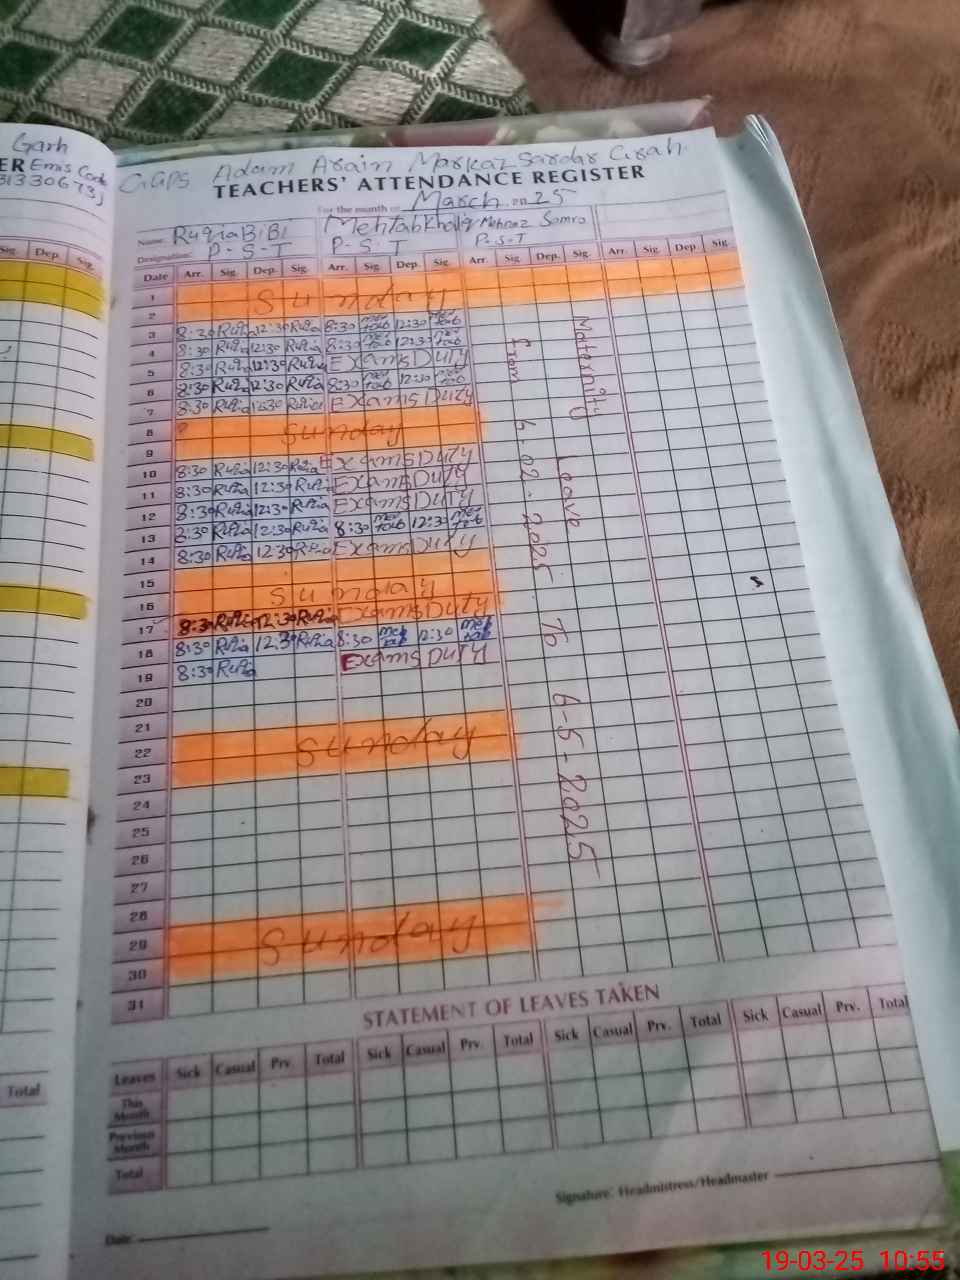 Garh
ER Emis Code
31330673)
GGPS Adam Arain Markaz Sardar Grah
TEACHERS' ATTENDANCE REGISTER
For the month of March 2025
Name: Ruqia BiBi Mehtab Khaliq Mehnaz Samro
Designation: P-S-T P-S-T P-S-T
Sig. Dep. Sig.
Date Arr. Sig. Dep. Sig. Arr. Sig. Dep. Sig. Arr. Sig. Dep. Sig. Arr. Sig. Dep. Sig.
1 Sunday
2
3 8:30 Ruqia 12:30 Ruqia 8:30 Meh tab 12:30 Meh tab
4 8:30 Ruqia 12:30 Ruqia 8:30 Meh tab 12:30 Meh tab
5 8:30 Ruqia 12:30 Ruqia Exams Duty
6 8:30 Ruqia 12:30 Ruqia 8:30 Meh tab 12:30 Meh tab
7 8:30 Ruqia 12:30 Ruqia Exams Duty
8 Sunday
9
10 8:30 Ruqia 12:30 Ruqia Exams Duty
11 8:30 Ruqia 12:30 Ruqia Exams Duty
12 8:30 Ruqia 12:30 Ruqia Exams Duty
13 8:30 Ruqia 12:30 Ruqia 8:30 Meh tab 12:30 Meh tab
14 8:30 Ruqia 12:30 Ruqia Exams Duty
15 Sunday
16
17 8:30 Ruqia 12:30 Ruqia Exams Duty
18 8:30 Ruqia 12:30 Ruqia 8:30 Meh tab 12:30 Meh tab
19 8:30 Ruqia Exams Duty
20
21
22 Sunday
23
24
25
26
27
28
29 Sunday
30
31
Maternity Leave
from 6-02-2025 To 6-5-2025
STATEMENT OF LEAVES TAKEN
Leaves Sick Casual Prv. Total Sick Casual Prv. Total Sick Casual Prv. Total Sick Casual Prv. Total
This Month
Previous Month
Total
Total
Signature: Headmistress/Headmaster
Date:
19-03-25 10:55